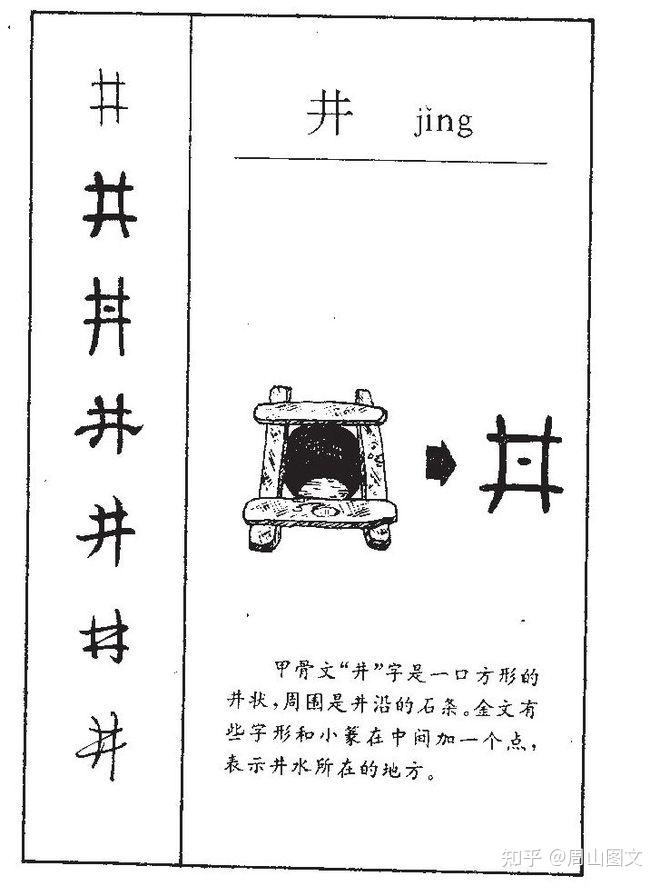 井 jǐng
甲骨文“井”字是一口方形的
井状，周围是井沿的石条。金文有
些字形和小篆在中间加一个点，
表示井水所在的地方。
知乎 @周山图文